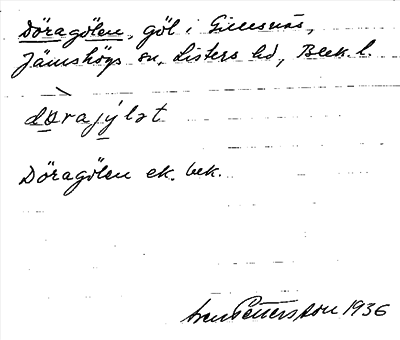 Döragölen, göl i Gillesnäs,
Jämshögs sn, Listers hd, Blek. l.
dørajýlət
Döragölen ek. bek.
Sven Pettersson 1936